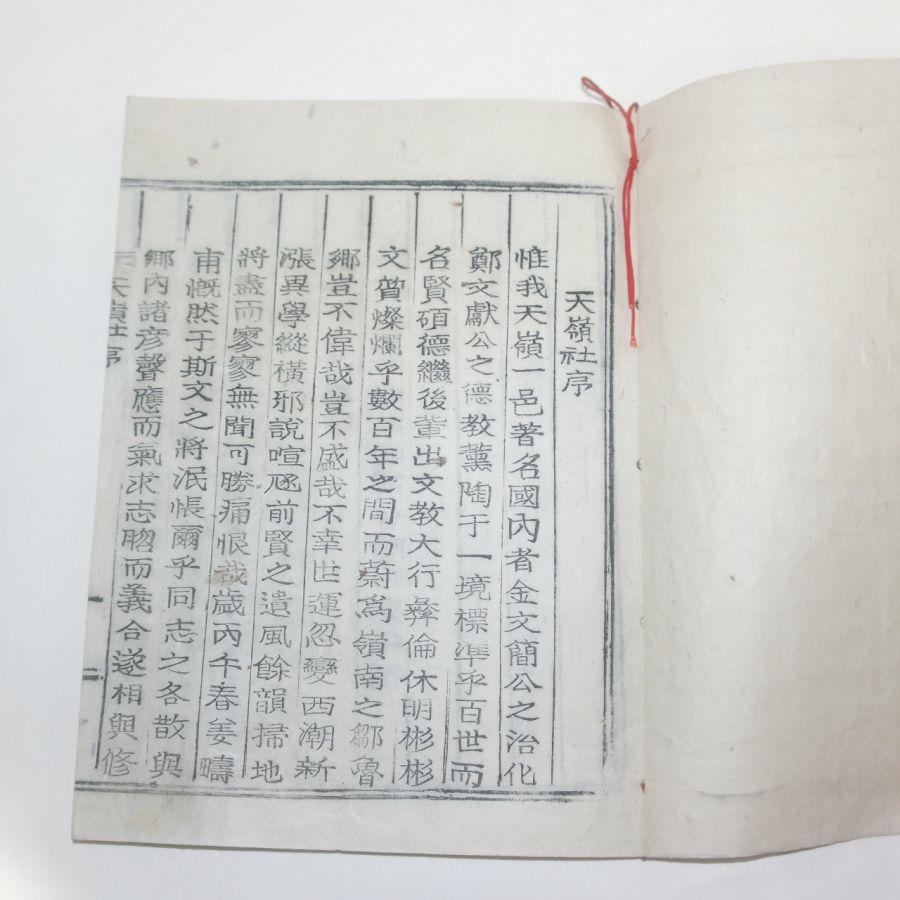 天嶺社序
惟我天嶺一邑著名國內者金文簡公之治化
鄭文獻公之德教薰陶于一境標準乎百世而
名賢碩德繼後輩出文教大行彝倫休明彬彬
文質燦爛乎數百年之間而蔚爲嶺南之鄒魯
鄉豈不偉哉豈不盛哉不幸世運忽變西潮新
漲異學縱橫邪說喧豗前賢之遺風餘韻掃地
將盡而寥寥無聞可勝痛恨哉歲丙午春姜疇
甫慨然于斯文之將泯悵爾乎同志之各散與
鄉內諸彦聲應而氣求志昭而義合遂相與修
天嶺社序
一